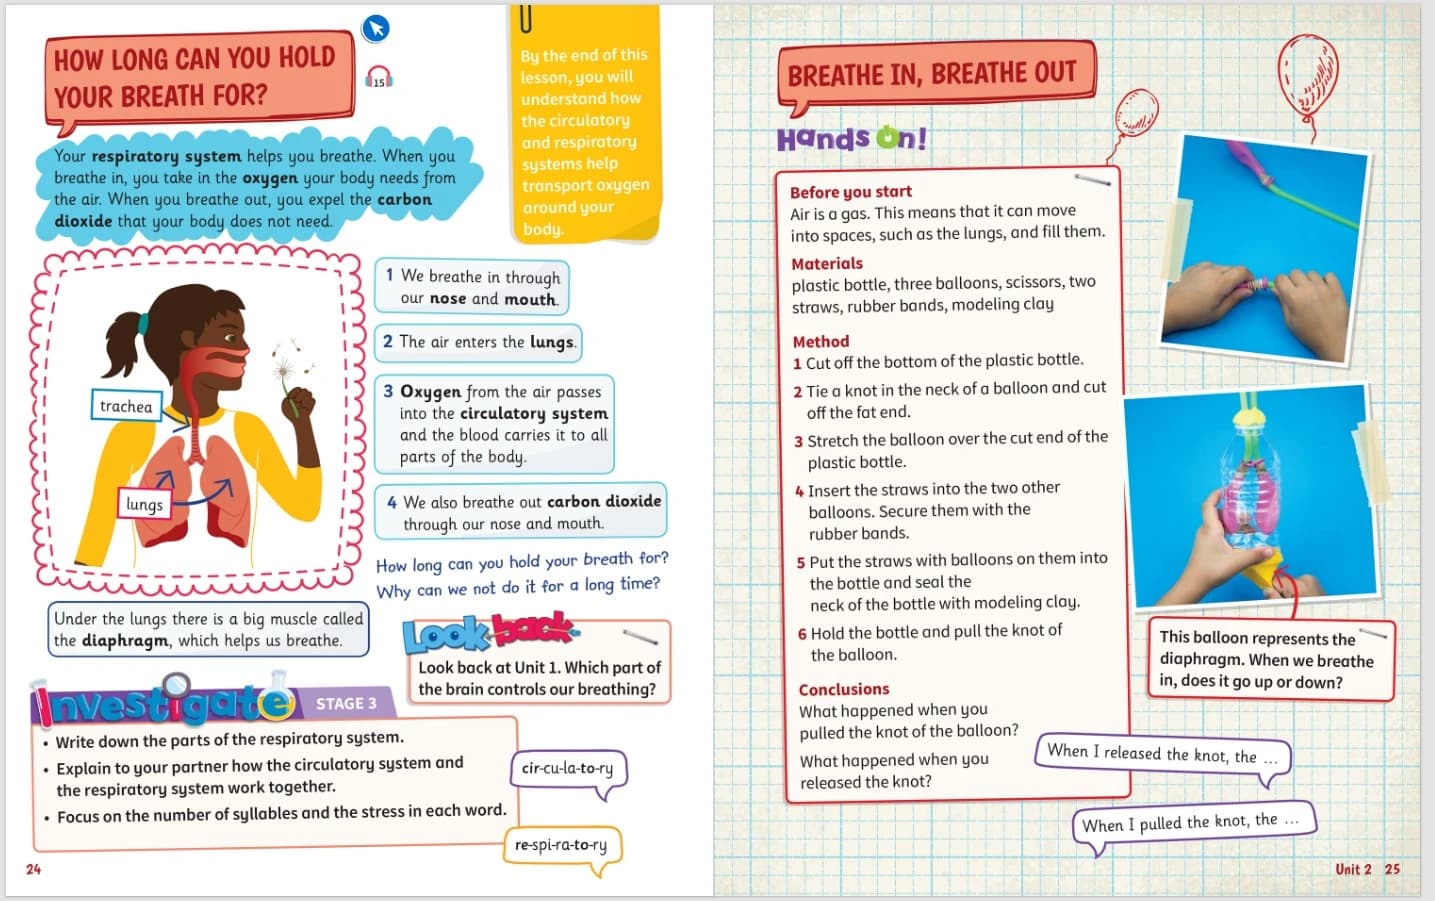 HOW LONG CAN YOU HOLD
YOUR BREATH FOR?
15
Your respiratory system helps you breathe. When you
breathe in, you take in the oxygen your body needs from
the air. When you breathe out, you expel the carbon
dioxide that your body does not need.
By the end of this
lesson, you will
understand how
the circulatory
and respiratory
systems help
transport oxygen
around your
body.
trachea
lungs
1 We breathe in through
our nose and mouth.
2 The air enters the lungs.
3 Oxygen from the air passes
into the circulatory system
and the blood carries it to all
parts of the body.
4 We also breathe out carbon dioxide
through our nose and mouth.
How long can you hold your breath for?
Why can we not do it for a long time?
Under the lungs there is a big muscle called
the diaphragm, which helps us breathe.
Look back
Look back at Unit 1. Which part of
the brain controls our breathing?
Investigate STAGE 3
• Write down the parts of the respiratory system.
• Explain to your partner how the circulatory system and
the respiratory system work together.
• Focus on the number of syllables and the stress in each word.
cir-cu-la-to-ry
re-spi-ra-to-ry
24
BREATHE IN, BREATHE OUT
Hands On!
Before you start
Air is a gas. This means that it can move
into spaces, such as the lungs, and fill them.
Materials
plastic bottle, three balloons, scissors, two
straws, rubber bands, modeling clay
Method
1 Cut off the bottom of the plastic bottle.
2 Tie a knot in the neck of a balloon and cut
off the fat end.
3 Stretch the balloon over the cut end of the
plastic bottle.
4 Insert the straws into the two other
balloons. Secure them with the
rubber bands.
5 Put the straws with balloons on them into
the bottle and seal the
neck of the bottle with modeling clay.
6 Hold the bottle and pull the knot of
the balloon.
Conclusions
What happened when you
pulled the knot of the balloon?
What happened when you
released the knot?
This balloon represents the
diaphragm. When we breathe
in, does it go up or down?
When I released the knot, the ...
When I pulled the knot, the ...
Unit 2 25